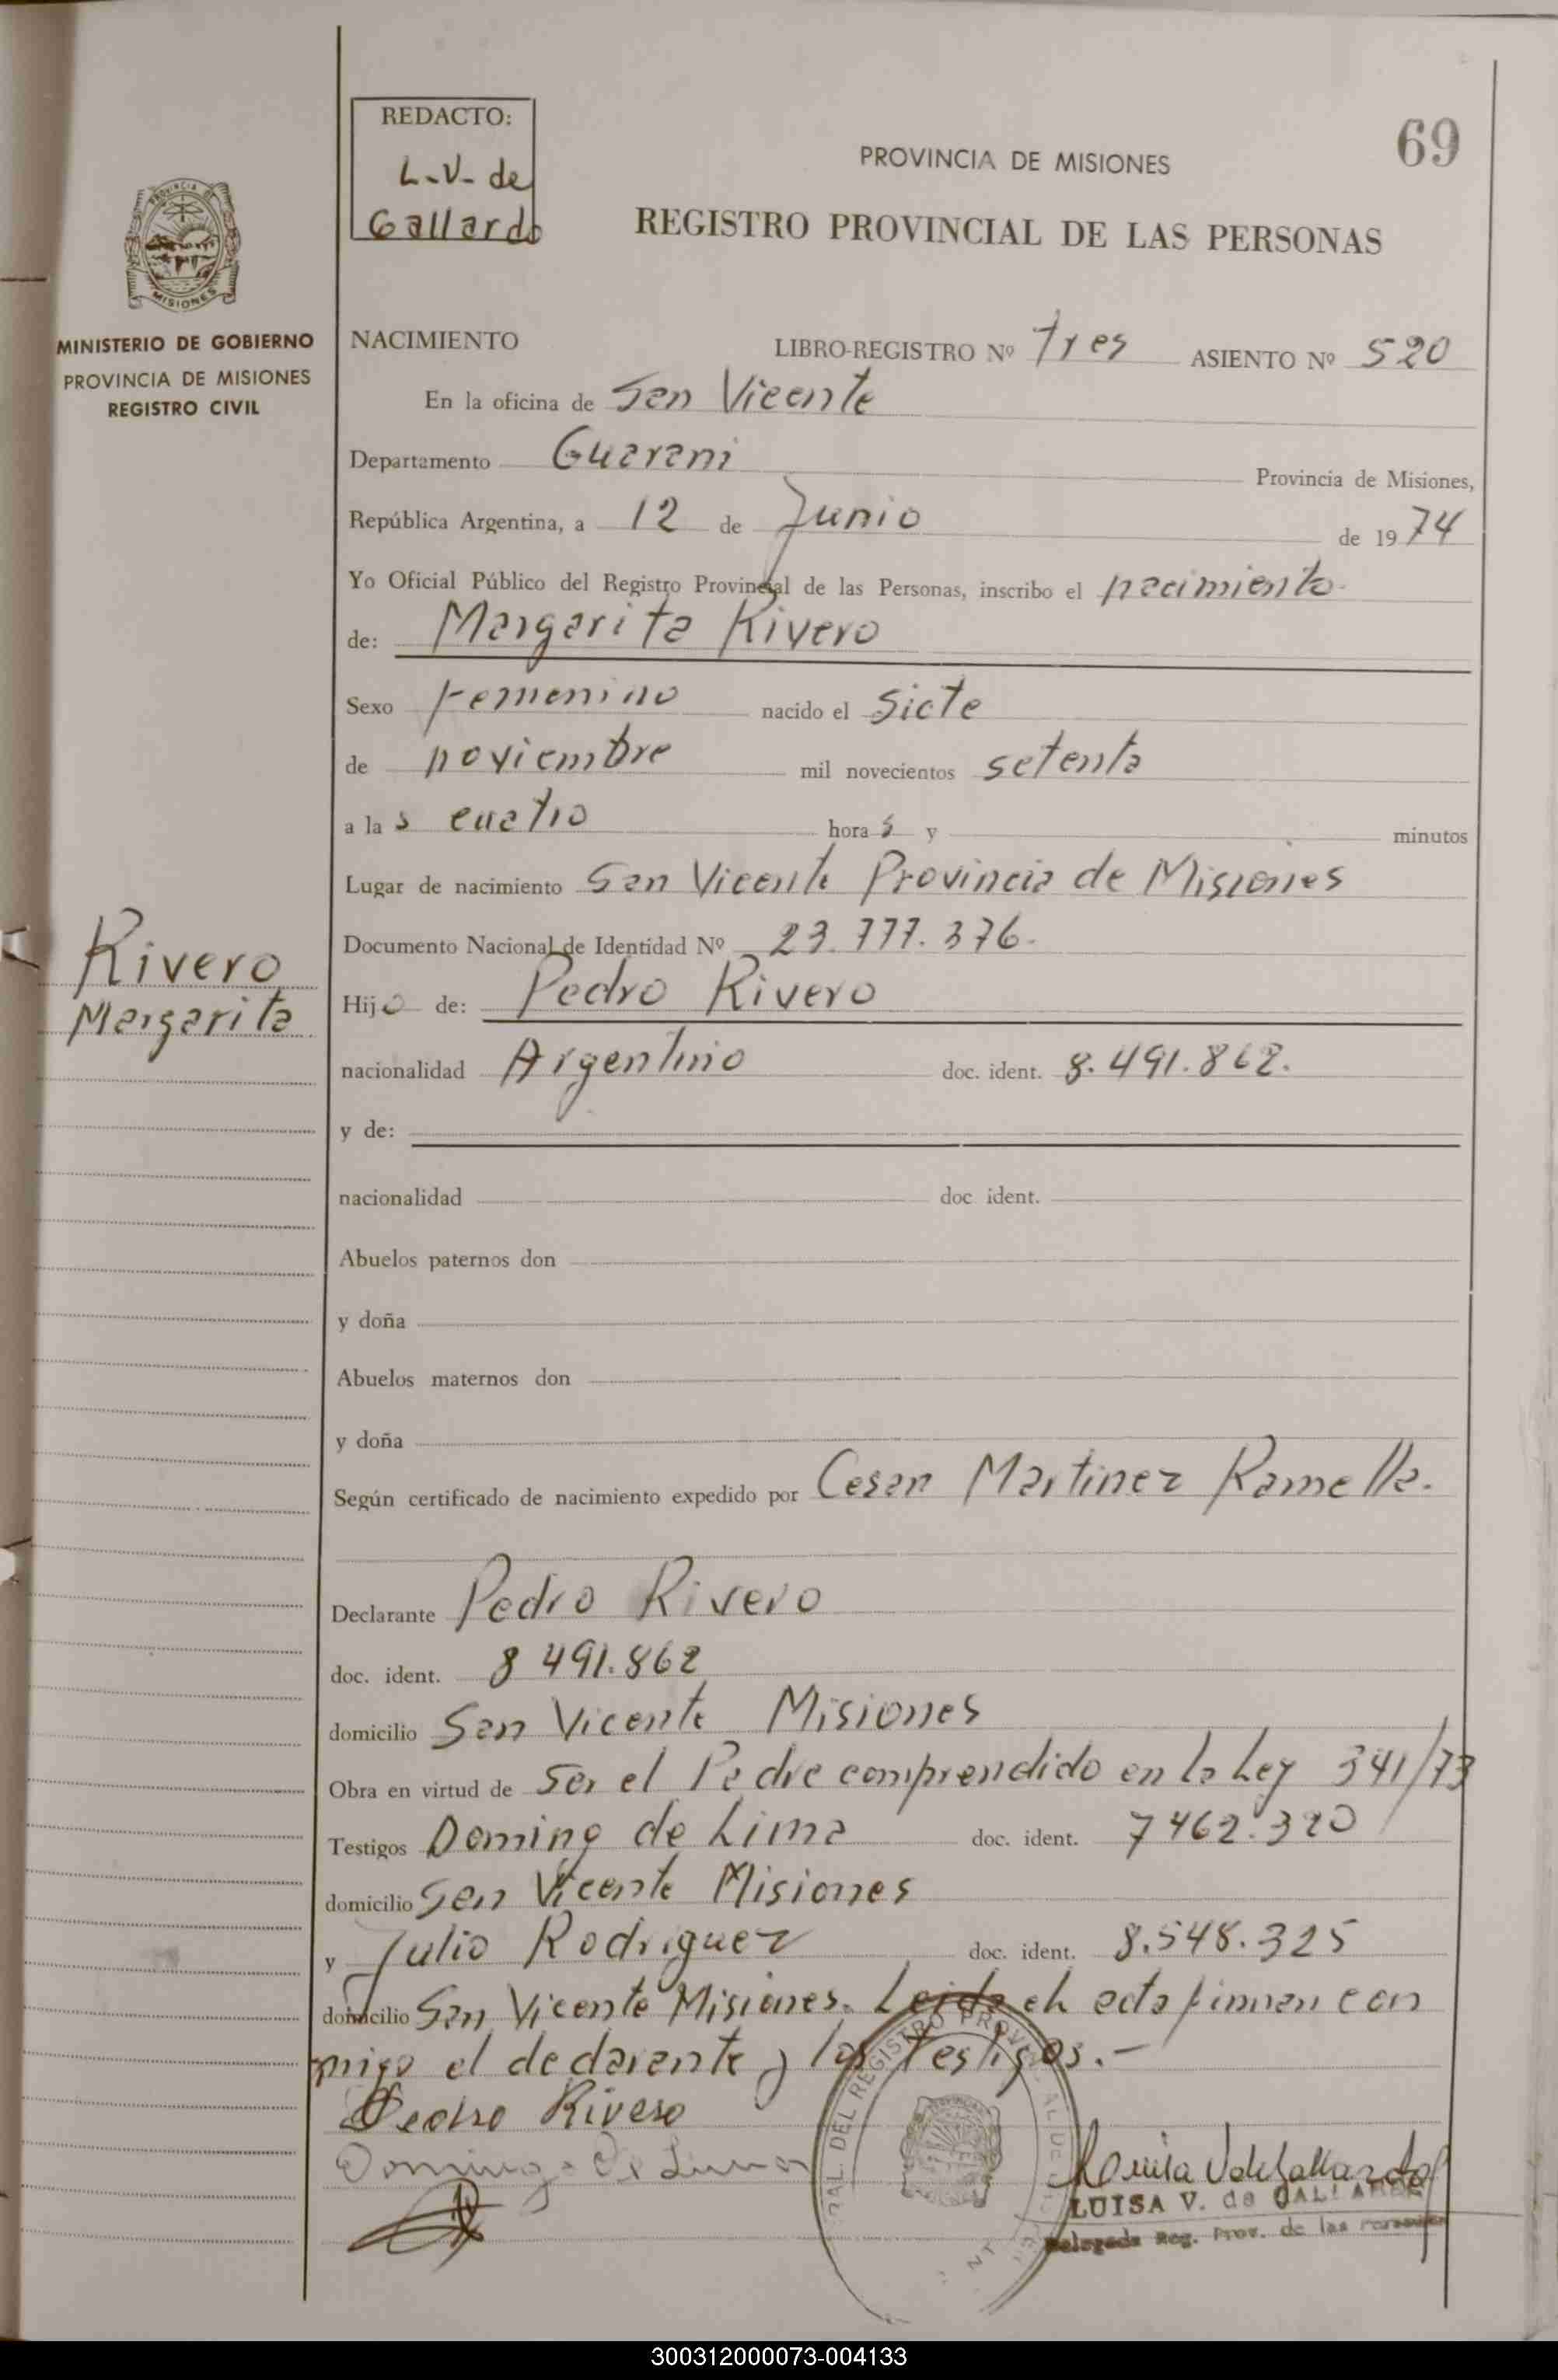 69
REDACTO:
L-V- de
Gallardo
PROVINCIA DE MISIONES
REGISTRO PROVINCIAL DE LAS PERSONAS
PROVINCIA DE
MISIONES
MINISTERIO DE GOBIERNO
PROVINCIA DE MISIONES
REGISTRO CIVIL
NACIMIENTO LIBRO-REGISTRO Nº tres ASIENTO Nº 520
En la oficina de San Vicente
Departamento Guarani Provincia de Misiones,
República Argentina, a 12 de Junio de 1974
Yo Oficial Público del Registro Provincial de las Personas, inscribo el nacimiento
de: Margarita Rivero
Sexo Femenino nacido el siete
de noviembre mil novecientos setenta
a las cuatro horas y minutos
Lugar de nacimiento San Vicente Provincia de Misiones
Documento Nacional de Identidad Nº 23.777.376.
Rivero
Margarita
Hijo de: Pedro Rivero
nacionalidad Argentino doc. ident. 8.491.862.
y de:
nacionalidad doc. ident.
Abuelos paternos don
y doña
Abuelos maternos don
y doña
Según certificado de nacimiento expedido por Cesar Martinez Ramella.
Declarante Pedro Rivero
doc. ident. 8 491.862
domicilio San Vicente Misiones
Obra en virtud de ser el Padre comprendido en la Ley 341/73
Testigos Domingo de Lima doc. ident. 7462.320
domicilio San Vicente Misiones
y Julio Rodriguez doc. ident. 8.548.325
domicilio San Vicente Misiones. Leida el acta firman con
migo el declarante y los testigos.-
Pedro Rivero
Domingo De Lima
DEL REGISTRO PROV
Luisa V de Gallardo
LUISA V. de GALLARDO
Delegada Reg. Prov. de las Personas
300312000073-004133